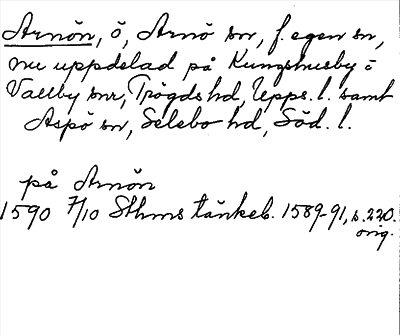 Arnön, ö, Arnö sn, f. egen sn,
nu uppdelad på Kungshusby o
Vallby snr, Trögds hd, Upps. l. samt
Aspö sn, Selebo hd, Söd. l.
på Arnön
1590 7/10 Sthms tänkeb. 1589-91, s. 220.
orig.